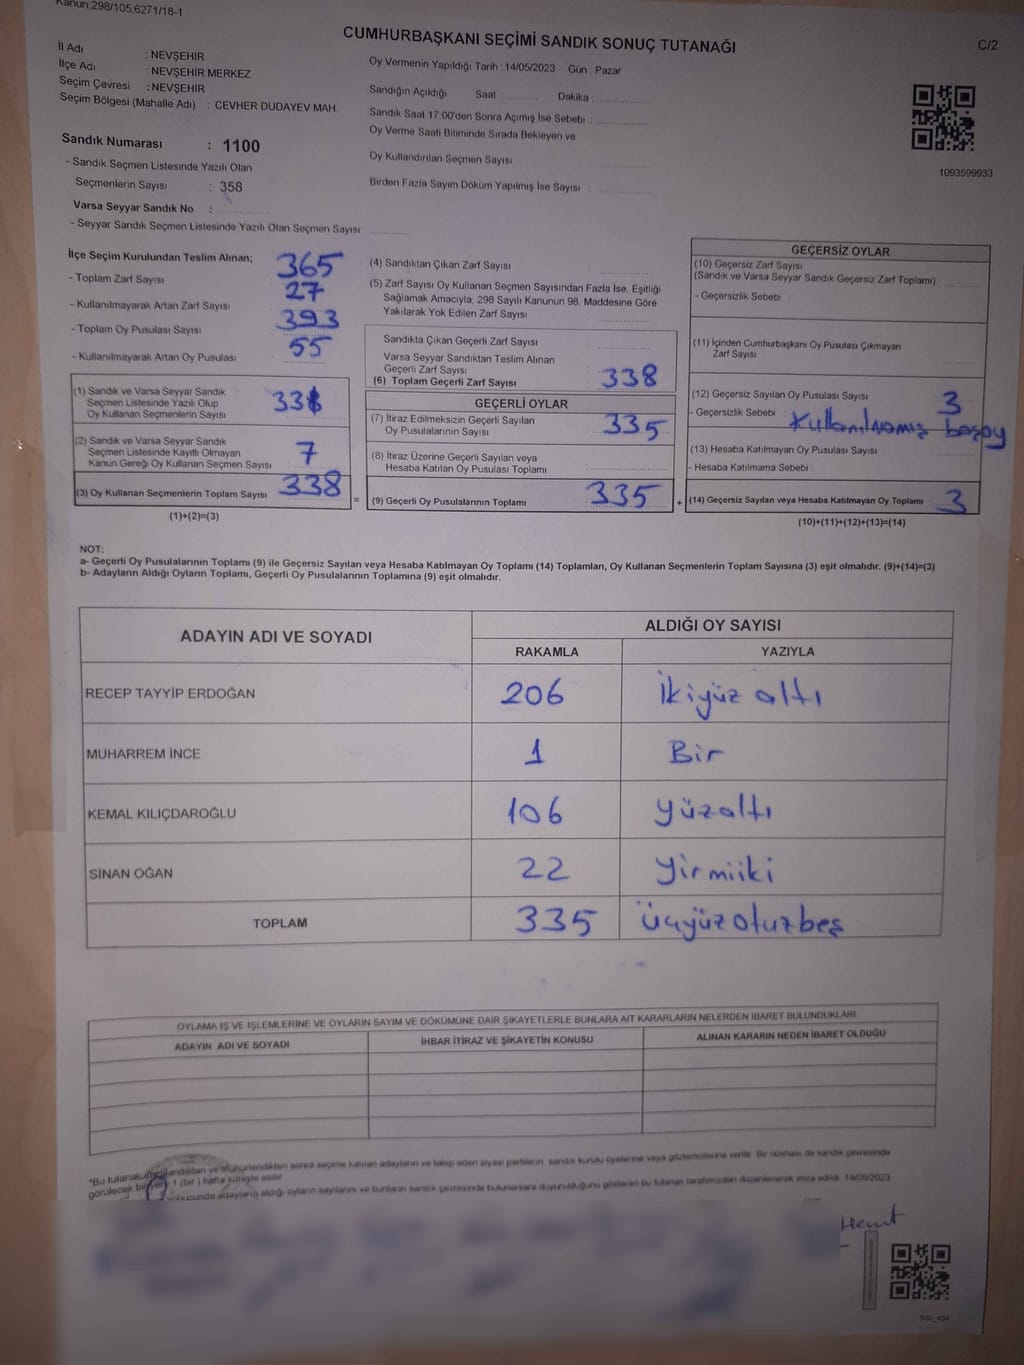 Kanun;298/105;6271/18-1
CUMHURBAŞKANI SEÇİMİ SANDIK SONUÇ TUTANAĞI
C/2
İl Adı : NEVŞEHİR
İlçe Adı : NEVŞEHİR MERKEZ
Seçim Çevresi : NEVŞEHİR
Seçim Bölgesi (Mahalle Adı) : CEVHER DUDAYEV MAH.
Sandık Numarası : 1100
- Sandık Seçmen Listesinde Yazılı Olan
Seçmenlerin Sayısı : 358
Varsa Seyyar Sandık No :
- Seyyar Sandık Seçmen Listesinde Yazılı Olan Seçmen Sayısı:
Oy Vermenin Yapıldığı Tarih : 14/05/2023 Gün : Pazar
Sandığın Açıldığı Saat Dakika :
Sandık Saat 17:00'den Sonra Açımış İse Sebebi :
Oy Verme Saati Bitiminde Sırada Bekleyen ve
Oy Kullandırılan Seçmen Sayısı :
Birden Fazla Sayım Döküm Yapılmış İse Sayısı :
1093599933
İlçe Seçim Kurulundan Teslim Alınan;
- Toplam Zarf Sayısı : 365
- Kullanılmayarak Artan Zarf Sayısı : 27
- Toplam Oy Pusulası Sayısı : 393
- Kullanılmayarak Artan Oy Pusulası : 55
(1) Sandık ve Varsa Seyyar Sandık
Seçmen Listesinde Yazılı Olup
Oy Kullanan Seçmenlerin Sayısı :
(2) Sandık ve Varsa Seyyar Sandık
Seçmen Listesinde Kayıtlı Olmayan
Kanun Gereği Oy Kullanan Seçmen Sayısı : 7
(3) Oy Kullanan Seçmenlerin Toplam Sayısı : 338
(1)+(2)=(3)
(4) Sandıktan Çıkan Zarf Sayısı :
(5) Zarf Sayısı Oy Kullanan Seçmen Sayısından Fazla İse, Eşitliği
Sağlamak Amacıyla; 298 Sayılı Kanunun 98. Maddesine Göre
Yakılarak Yok Edilen Zarf Sayısı :
Sandıkta Çıkan Geçerli Zarf Sayısı :
Varsa Seyyar Sandıktan Teslim Alınan
Geçerli Zarf Sayısı :
(6) Toplam Geçerli Zarf Sayısı : 338
GEÇERLİ OYLAR
(7) İtiraz Edilmeksizin Geçerli Sayılan
Oy Pusulalarının Sayısı : 335
(8) İtiraz Üzerine Geçerli Sayılan veya
Hesaba Katılan Oy Pusulası Toplamı :
= (9) Geçerli Oy Pusulalarının Toplamı : 335 +
GEÇERSİZ OYLAR
(10) Geçersiz Zarf Sayısı
(Sandık ve Varsa Seyyar Sandık Geçersiz Zarf Toplamı) :
- Geçersizlik Sebebi :
(11) İçinden Cumhurbaşkanı Oy Pusulası Çıkmayan
Zarf Sayısı :
(12) Geçersiz Sayılan Oy Pusulası Sayısı : 3
- Geçersizlik Sebebi : Kullanılmamış boşoy
(13) Hesaba Katılmayan Oy Pusulası Sayısı :
- Hesaba Katılmama Sebebi :
(14) Geçersiz Sayılan veya Hesaba Katılmayan Oy Toplamı : 3
(10)+(11)+(12)+(13)=(14)
NOT:
a- Geçerli Oy Pusulalarının Toplamı (9) ile Geçersiz Sayılan veya Hesaba Katılmayan Oy Toplamı (14) Toplamları, Oy Kullanan Seçmenlerin Toplam Sayısına (3) eşit olmalıdır. (9)+(14)=(3)
b- Adayların Aldığı Oyların Toplamı, Geçerli Oy Pusulalarının Toplamına (9) eşit olmalıdır.
ADAYIN ADI VE SOYADI ALDIĞI OY SAYISI
RAKAMLA YAZIYLA
RECEP TAYYİP ERDOĞAN 206 İkiyüz altı
MUHARREM İNCE 1 Bir
KEMAL KILIÇDAROĞLU 106 yüzaltı
SİNAN OĞAN 22 yirmiiki
TOPLAM 335 üçyüz otuz beş
OYLAMA İŞ VE İŞLEMLERİNE VE OYLARIN SAYIM VE DÖKÜMÜNE DAİR ŞİKAYETLERLE BUNLARA AİT KARARLARIN NELERDEN İBARET BULUNDUKLARI
ADAYIN ADI VE SOYADI İHBAR İTİRAZ VE ŞİKAYETİN KONUSU ALINAN KARARIN NEDEN İBARET OLDUĞU
*Bu tutanak imzalandıktan ve mühürlendikten sonra seçime katılan adayların ve talep eden siyasi partilerin sandık kurulu üyelerine veya gözlemcilerine verilir. Bir nüshası da sandık çevresinde
görülecek bir yere 1 (bir) hafta süreyle asılır.
sonucunda adayların aldığı oyların sayılarını ve bunların sandık çevresinde bulunanlara duyurulduğunu gösteren bu tutanak tarafımızdan düzenlenerek imza edildi. 14/05/2023